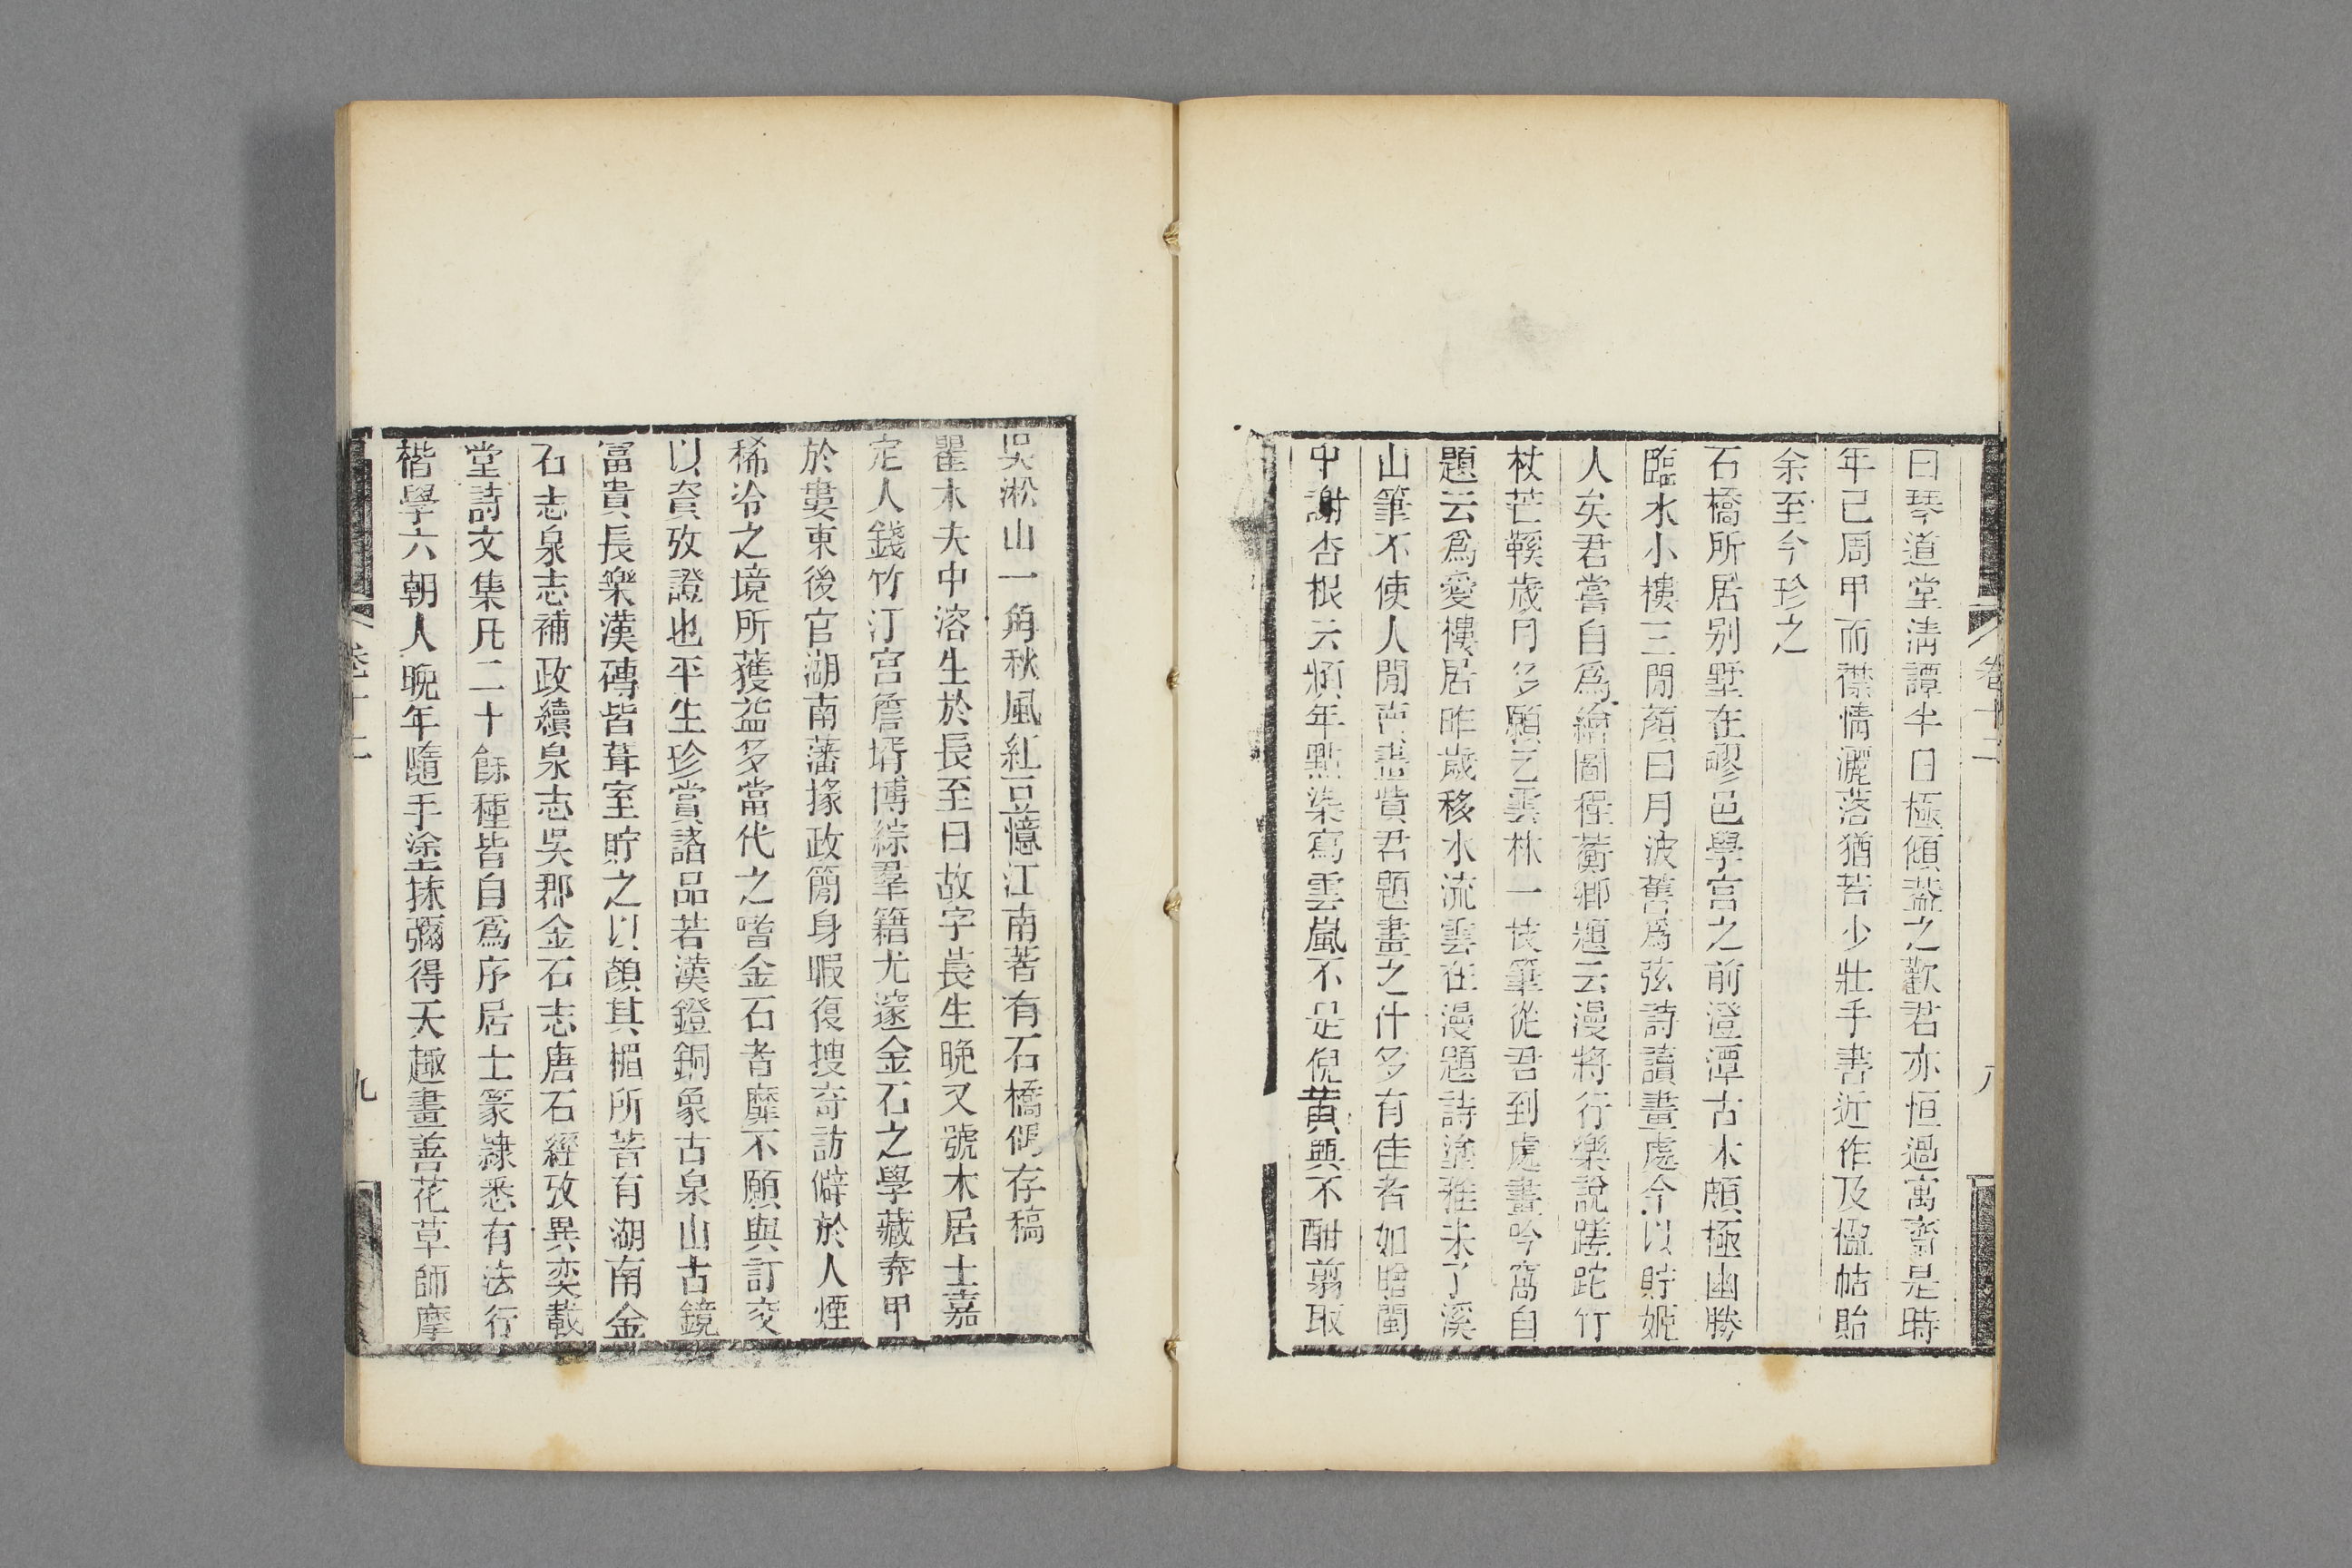 卷十二
八
曰琴道堂淸譚半日極傾葢之歡君亦恒過寓齋是時
年已周甲而襟情灑落猶若少壯手書近作及楹帖貽
余至今珍之
石橋所居别墅在郡邑學宫之前澄潭古木頗極幽勝
臨水小樓三閒顏曰月波舊爲弦詩讀畫處今以貯姬
人矣君嘗自爲繪圖程蘅鄉題云漫將行樂說蹉跎竹
杖芒鞵歲月多願乞雲林一枝筆從君到處畫吟窩自
題云爲愛樓居昨歲移水流雲在漫題詩塗雅未了溪
山筆不使人閒賣畫貲君題畫之什多有佳者如贈閩
中謝杏根云頻年點染寫雲嵐不是倪黄興不酣翦取
吳淞山一角秋風紅豆憶江南著有石橋偶存稿
瞿木夫中溶生於長至日故字萇生晚又號木居士嘉
定人錢竹汀宫詹壻博綜羣籍尤邃金石之學藏弆甲
於婁東後官湖南藩掾政簡身暇復搜奇訪僻於人煙
稀冷之境所獲益多當代之嗜金石者靡不願與訂交
以資攷證也平生珍賞諸品若漢鐙銅象古泉山古鏡
富貴長樂漢磚皆葺室貯之以顏其楣所著有湖南金
石志泉志補政續泉志吳郡金石志唐石經攷異奕載
堂詩文集凡二十餘種皆自爲序居士篆隷悉有法行
楷學六朝人晩年隨手塗抹彌得天趣畫善花草師摩
卷十二
九